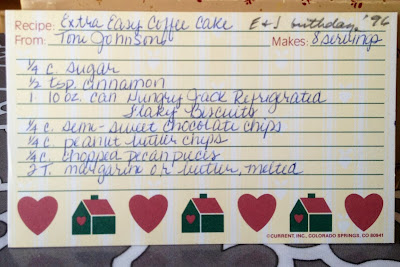 Recipe: Extra Easy Coffee Cake E & J birthday, '96
From: Toni Johnson Makes: 8 servings
1/4 c. sugar
1/2 tsp. cinnamon
1 10 oz. can Hungry Jack Refrigerated
Flaky Biscuits
1/4 c. semi-sweet chocolate chips
1/4 c. peanut butter chips
1/4 c. chopped pecan pieces
2 T. margarine or butter, melted
©CURRENT, INC., COLORADO SPRINGS, CO 80941